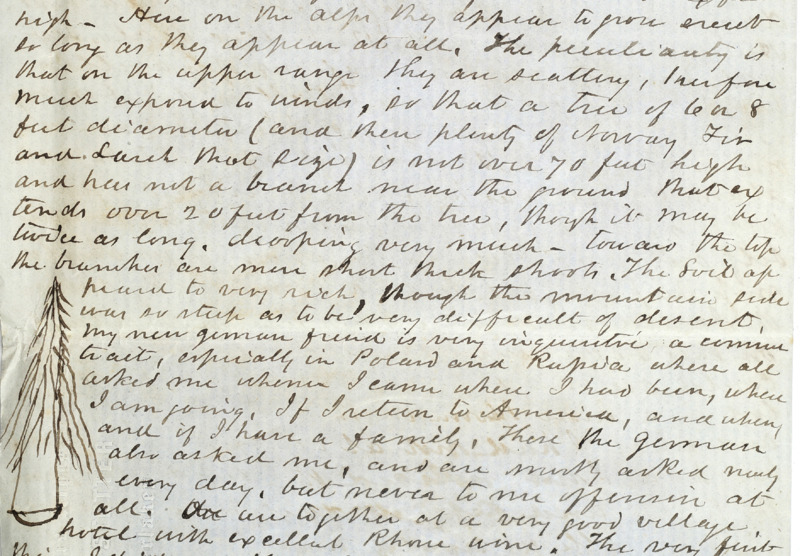 high - Here on the alps they appear to grow erect
so long as they appear at all. The peculiarity is
that on the upper range they are scattery, therefore
much exposed to winds, so that a tree of 6 or 8
feet diameter (and there plenty of Norway Fir
and Larch that size) is not over 70 feet high
and has not a branch near the ground that ex
tends over 20 feet from the tree, though it may be
twice as long. drooping very much - toward the top
the branches are mere short thick shoots. The Soil ap
peared to very rich, though the mountain side
was so steep as to be very difficult of descent.
My new german friend is very inquisitive a comme
tract, especially in Poland and Russia where all
asked me whence I came where I had been, where
I am going. If I return to America, and when,
and if I have a family. These the german
also asked me, and are mostly asked nearly
every day. but never to me offensive at
all. We are together at a very good village
hotel with excellent Rhone wine. The very first